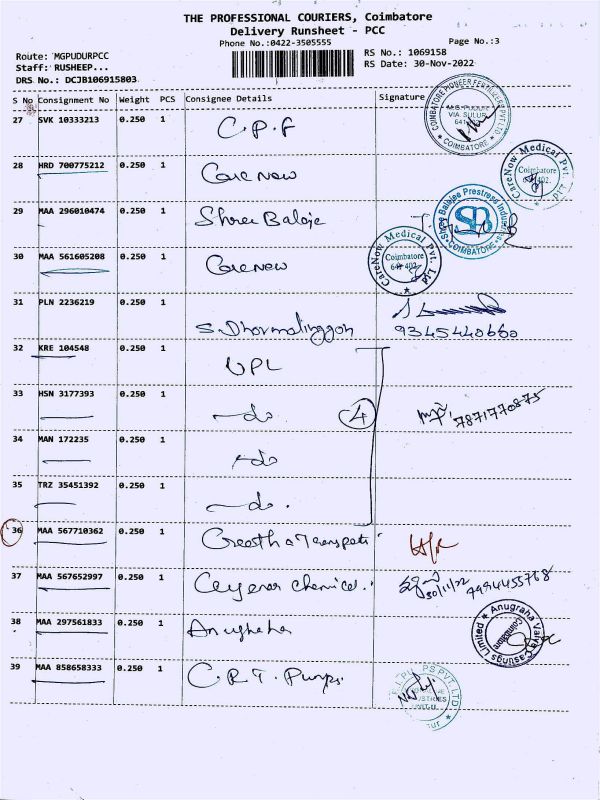 THE PROFESSIONAL COURIERS, Coimbatore
Delivery Runsheet - PCC
Phone No.:0422-3505555
Page No.:3
Route: MGPUDURPCC
Staff: RUSHEEP...
DRS No.: DCJB106915803
RS No.: 1069158
RS Date: 30-Nov-2022
S No Consignment No Weight PCS Consignee Details Signature
27 SVK 10333213 0.250 1 C.P.F
COIMBATORE PIONEER FERTILIZERS PVT LTD
VIA. SULUR
COIMBATORE
28 HRD 700775212 0.250 1 Care now
CareNow Medical Pvt. Ltd
Coimbatore
641 402
29 MAA 296010474 0.250 1 Shree Balaje
Shree Balajee Prestress Industries
SB
COIMBATORE
30 MAA 561605208 0.250 1 Carenow
CareNow Medical Pvt. Ltd
Coimbatore
641 402
31 PLN 2236219 0.250 1 S. Dharmalinggan
9345440660
32 KRE 104548 0.250 1 UPL
33 HSN 3177393 0.250 1 -do- 4 7871770875
34 MAN 172235 0.250 1 -do-
35 TRZ 35451392 0.250 1 -do-
36 MAA 567710362 0.250 1
37 MAA 567652997 0.250 1 30/11/22 9494455768
38 MAA 297561833 0.250 1 Anugraha
Anugraha Valve Castings Limited
Coimbatore
39 MAA 858658333 0.250 1 C.R.I. Pumps